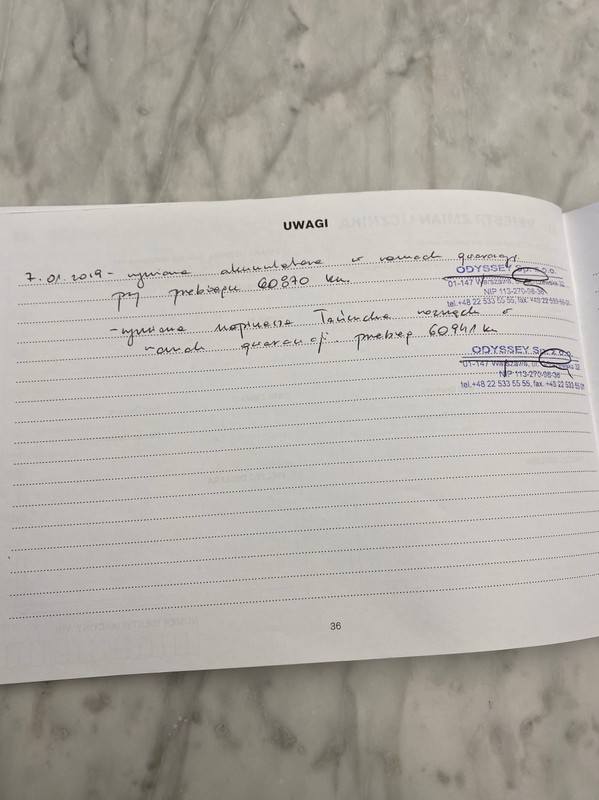 UWAGI
7.01.2019 - wymiana akumulatora w ramach gwarancji
ODYSSEY Sp. z o.o.
przy przebiegu 60870 km
01-147 Warszawa, 32
NIP 113-270-08-36
tel.+48 22 533 55 55, fax. +48 22 533 55 01
- wymiana napinacza łańcucha rozrządu w
ramach gwarancji. przebieg 60941 km
ODYSSEY Sp. z o.o.
01-147 Warszawa, ul. 32
NIP 113-270-08-36
tel.+48 22 533 55 55, fax. +48 22 533 55 01
36